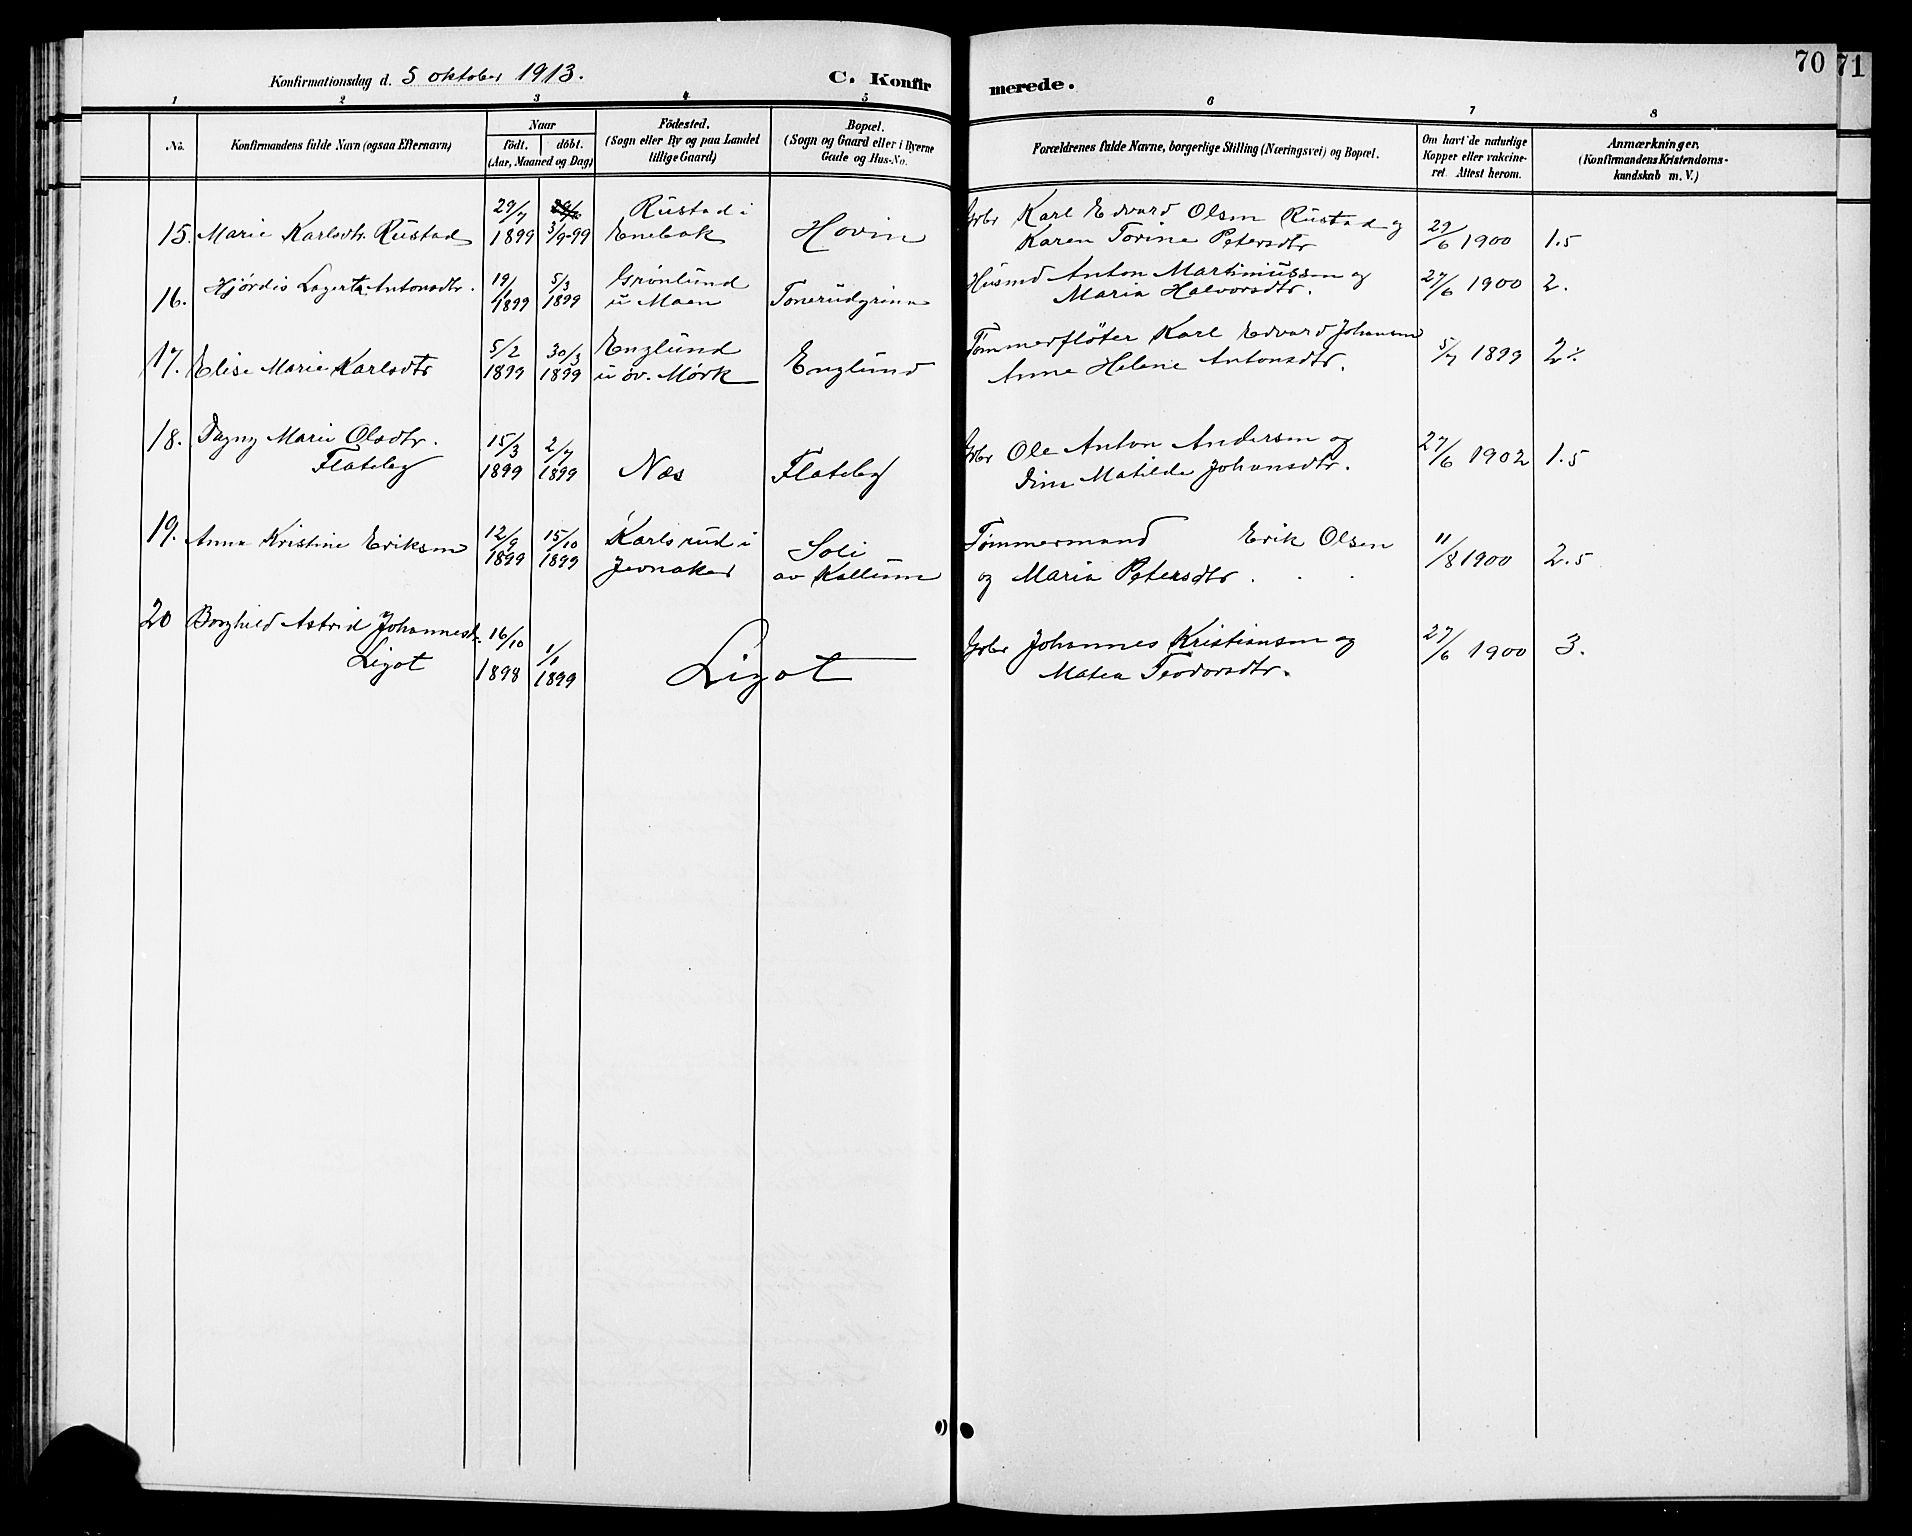 70
71
Konfirmationsdag d. 5 oktober 1913.
C. Konfirmerede.
1 2 3 4 5 6 7 8
No.
Konfirmandens fulde Navn (ogsaa Efternavn)
Naar
födt. döbt.
(Aar, Maaned og Dag)
Födested.
(Sogn eller By og paa Landet
tillige Gaard)
Bopæl.
(Sogn og Gaard eller i Byerne
Gade og Hus-No.
Forældrenes fulde Navne, borgerlige Stilling (Næringsvei) og Bopæl.
Om havt de naturlige
Kopper eller vakcine-
ret. Attest herom.
Anmærkninger,
(Konfirmandens Kristendoms-
kundskab m. V.)
15. Marie Karlsdtr. Rustad
29/7 1899
3/9-99
Rustad i
Enebak
Hovin
Gbr Karl Edvard Olsen Rustad og
Karen Torine Petersdtr
29/6 1900
1.5
16. Hjørdis Lagerta Antonsdtr.
19/1 1899
5/3 1899
Grönlund
u Moen
Tonerudgrinn
Husmd Anton Martinussen og
Maria Halvorsdtr.
27/6 1900
2.
17. Elise Marie Karlsdtr
5/2 1899
30/3 1899
Englund
u öv. Mörk
Englund
Tømmerflöter Karl Edvard Johansen
Anne Helene Antonsdtr.
5/7 1899
18. Dagny Marie Olsdtr.
Flateby
15/3 1899
2/7 1899
Næs
Flateby
Gbr Ole Anton Andersen og
Dina Matilde Johansdtr.
27/6 1902
1.5
19. Anna Kristine Eriksen
12/9 1899
15/10 1899
Karlsrud i
Jevnaker
Soli
av Kallum
Tømmermand Erik Olsen
og Maria Petersdtr.
11/8 1900
2.5
20 Borghild Astrid Johannesdt.
Ligot
16/10 1898
1/1 1899
Ligot
Gbr Johannes Kristiansen og
Matea Teodorsdtr.
27/6 1900
3.